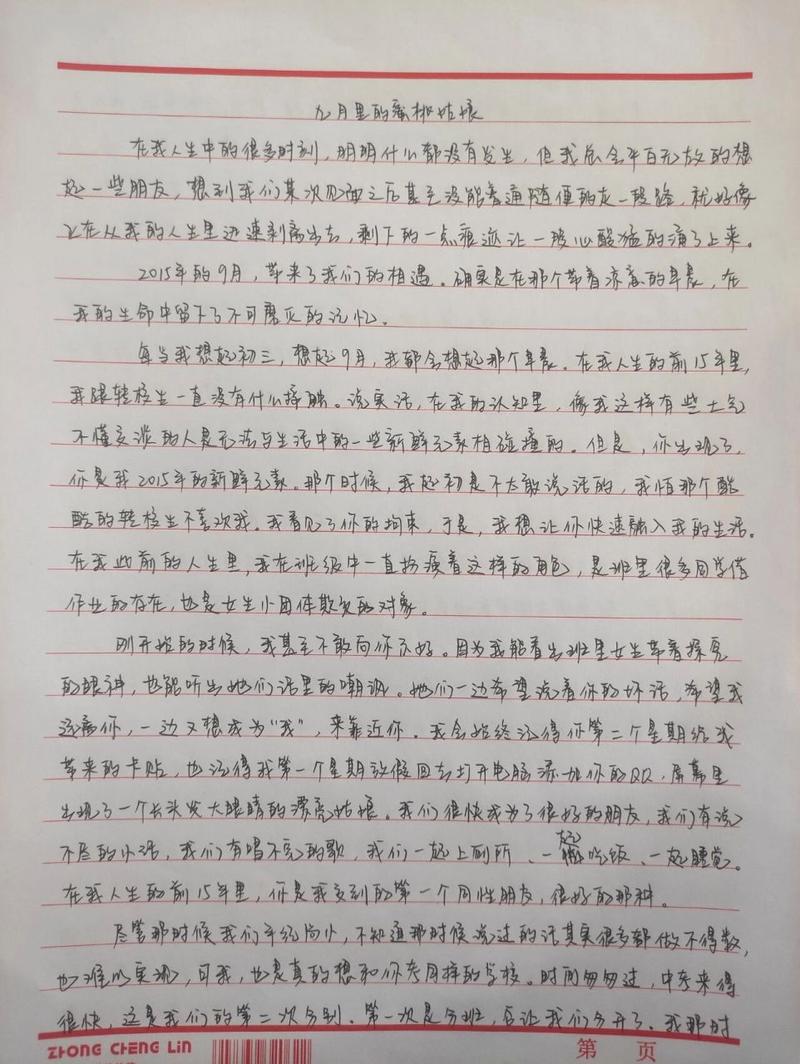 九月里的蜜桃姑娘
在我人生中的很多时刻，明明什么都没有发生，但我总会平白无故的想
起一些朋友，想到我们某次见面之后甚至没能普通随便的走一段路，就好像
正在从我的人生里迅速剥离出去，剩下的一点痕迹让一股心酸猛的涌了上来。
2015年的9月，带来了我们的相遇。确实是在那个带着凉意的早晨，在
我的生命中留下了不可磨灭的记忆。
每当我想起初三，想起9月，我都会想起那个早晨。在我人生的前15年里，
我跟转校生一直没有什么接触。说实话，在我的认知里，像我这样有些土气
不懂交谈的人是无法与生活中的一些新鲜元素相碰撞的。但是，你出现了，
你是我2015年的新鲜元素。那个时候，我起初是不太敢说话的，我怕那个酷
酷的转校生不喜欢我。我看见了你的拘束，于是，我想让你快速融入我的生活。
在我此前的人生里，我在班级中一直扮演着这样的角色，是班里很多同学借
作业的存在，也是女生小团体欺负的对象。
刚开始的时候，我甚至不敢向你示好。因为我能看出班里女生带着探究
的眼神，也能听出她们话里的嘲讽。她们一边希望说着你的坏话，希望我
远离你，一边又想成为“我”，来靠近你。我会始终记得你第二个星期给我
带来的卡贴，也记得我第一个星期放假回去打开电脑添加你的QQ，屏幕里
出现了一个长头发大眼睛的漂亮姑娘。我们很快成为了很好的朋友，我们有说
不尽的小话，我们有唱不完的歌，我们一起上厕所、一起吃饭、一起睡觉。
在我人生的前15年里，你是我交到的第一个同性朋友，很好的那种。
尽管那时候我们年纪尚小，不知道那时候说过的话其实很多都做不得数，
也难以实现，可我，也是真的想和你考同样的学校。时间匆匆过，中考来得
很快，这是我们的第二次分别。第一次是分班，它让我们分开了。我那时
ZHONG CHENG LIN
第 页